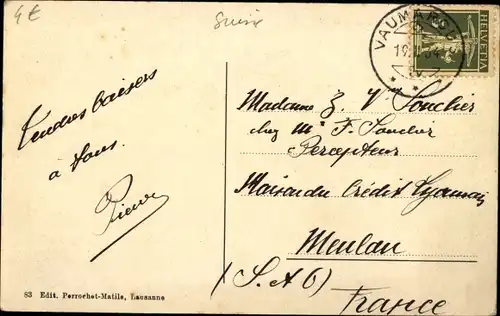 4€
Suisse
VAUMARCUS
HELVETIA
Tendres baisers
à tous.
Pierre
Madame Z. V. Souchier
chez Mr F. Souchier
Percepteur
Maison du Crédit Lyonnais
Meulan
(S. & O)
France
83 Edit. Perrochet-Matile, Lausanne